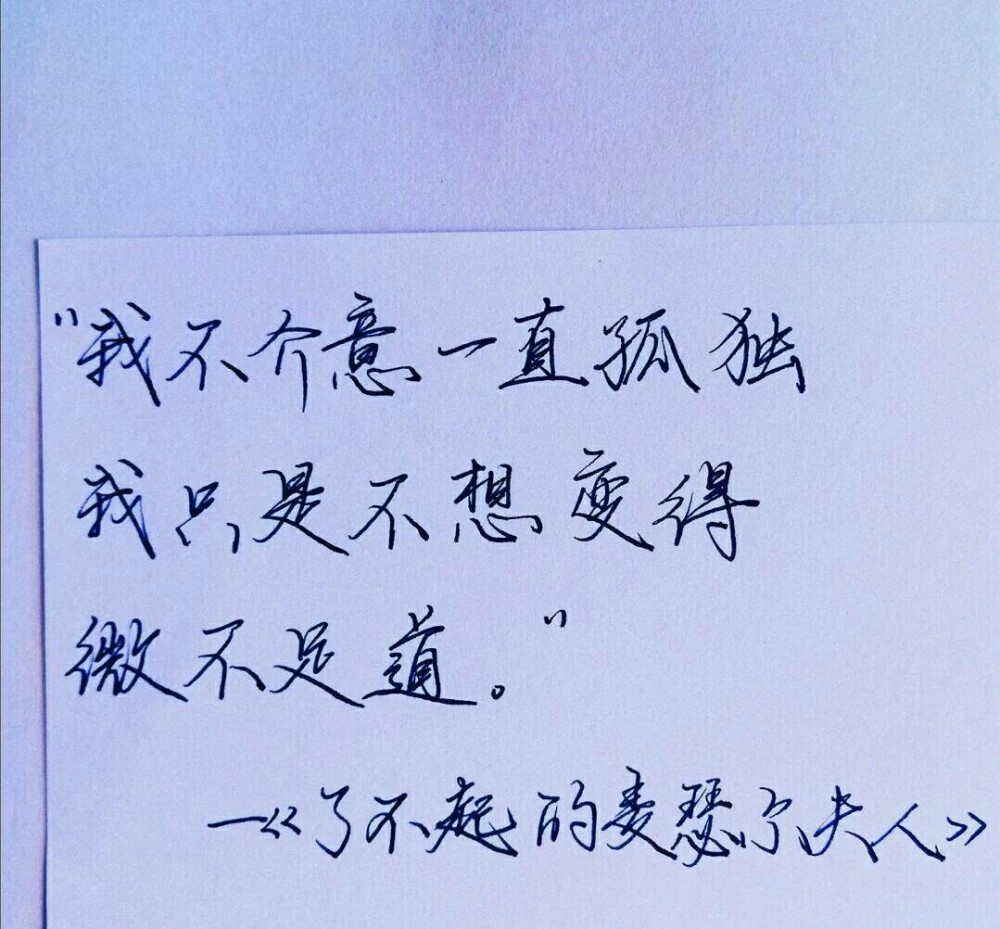 "我不介意一直孤独
我只是不想变得
微不足道。"
—《了不起的麦瑟尔夫人》